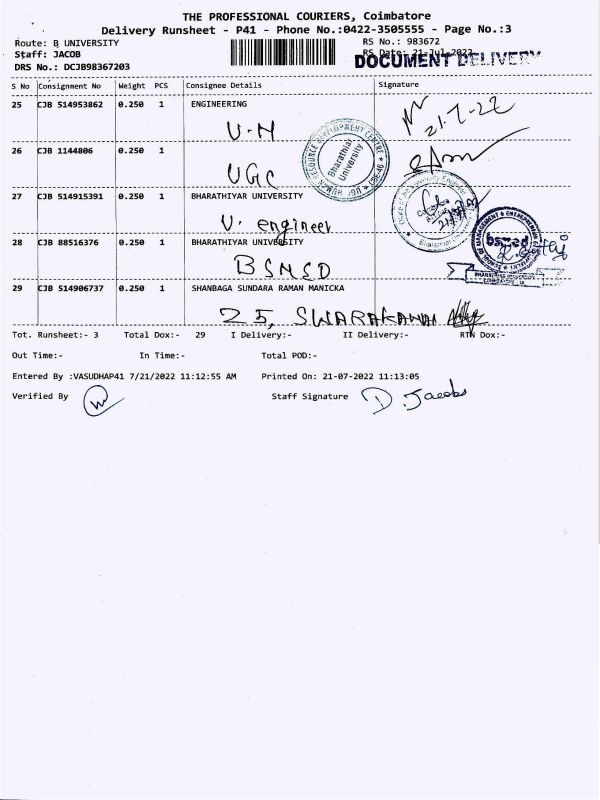 THE PROFESSIONAL COURIERS, Coimbatore
Delivery Runsheet - P41 - Phone No.:0422-3505555 - Page No.:3
Route: B UNIVERSITY
RS No.: 983672
Staff: JACOB
RS Date: 21-Jul-2022
DOCUMENT DELIVERY
DRS No.: DCJB98367203
S No Consignment No Weight PCS Consignee Details Signature
25 CJB 514953862 0.250 1 ENGINEERING
U.M
21.7.22
26 CJB 1144806 0.250 1
UGC
UGC HUMAN RESOURCE DEVELOPMENT CENTRE
Bharathiar
University
27 CJB 514915391 0.250 1 BHARATHIYAR UNIVERSITY
U. engineer
28 CJB 88516376 0.250 1 BHARATHIYAR UNIVERSITY
BSMSD
SCHOOL OF MANAGEMENT & ENTREPRENEUR
bsmed
29 CJB 514906737 0.250 1 SHANBAGA SUNDARA RAMAN MANICKA
25, SWARAKAWAI
Tot. Runsheet:- 3 Total Dox:- 29 I Delivery:- II Delivery:- RTN Dox:-
Out Time:- In Time:- Total POD:-
Entered By :VASUDHAP41 7/21/2022 11:12:55 AM Printed On: 21-07-2022 11:13:05
Verified By Staff Signature D. Jacob